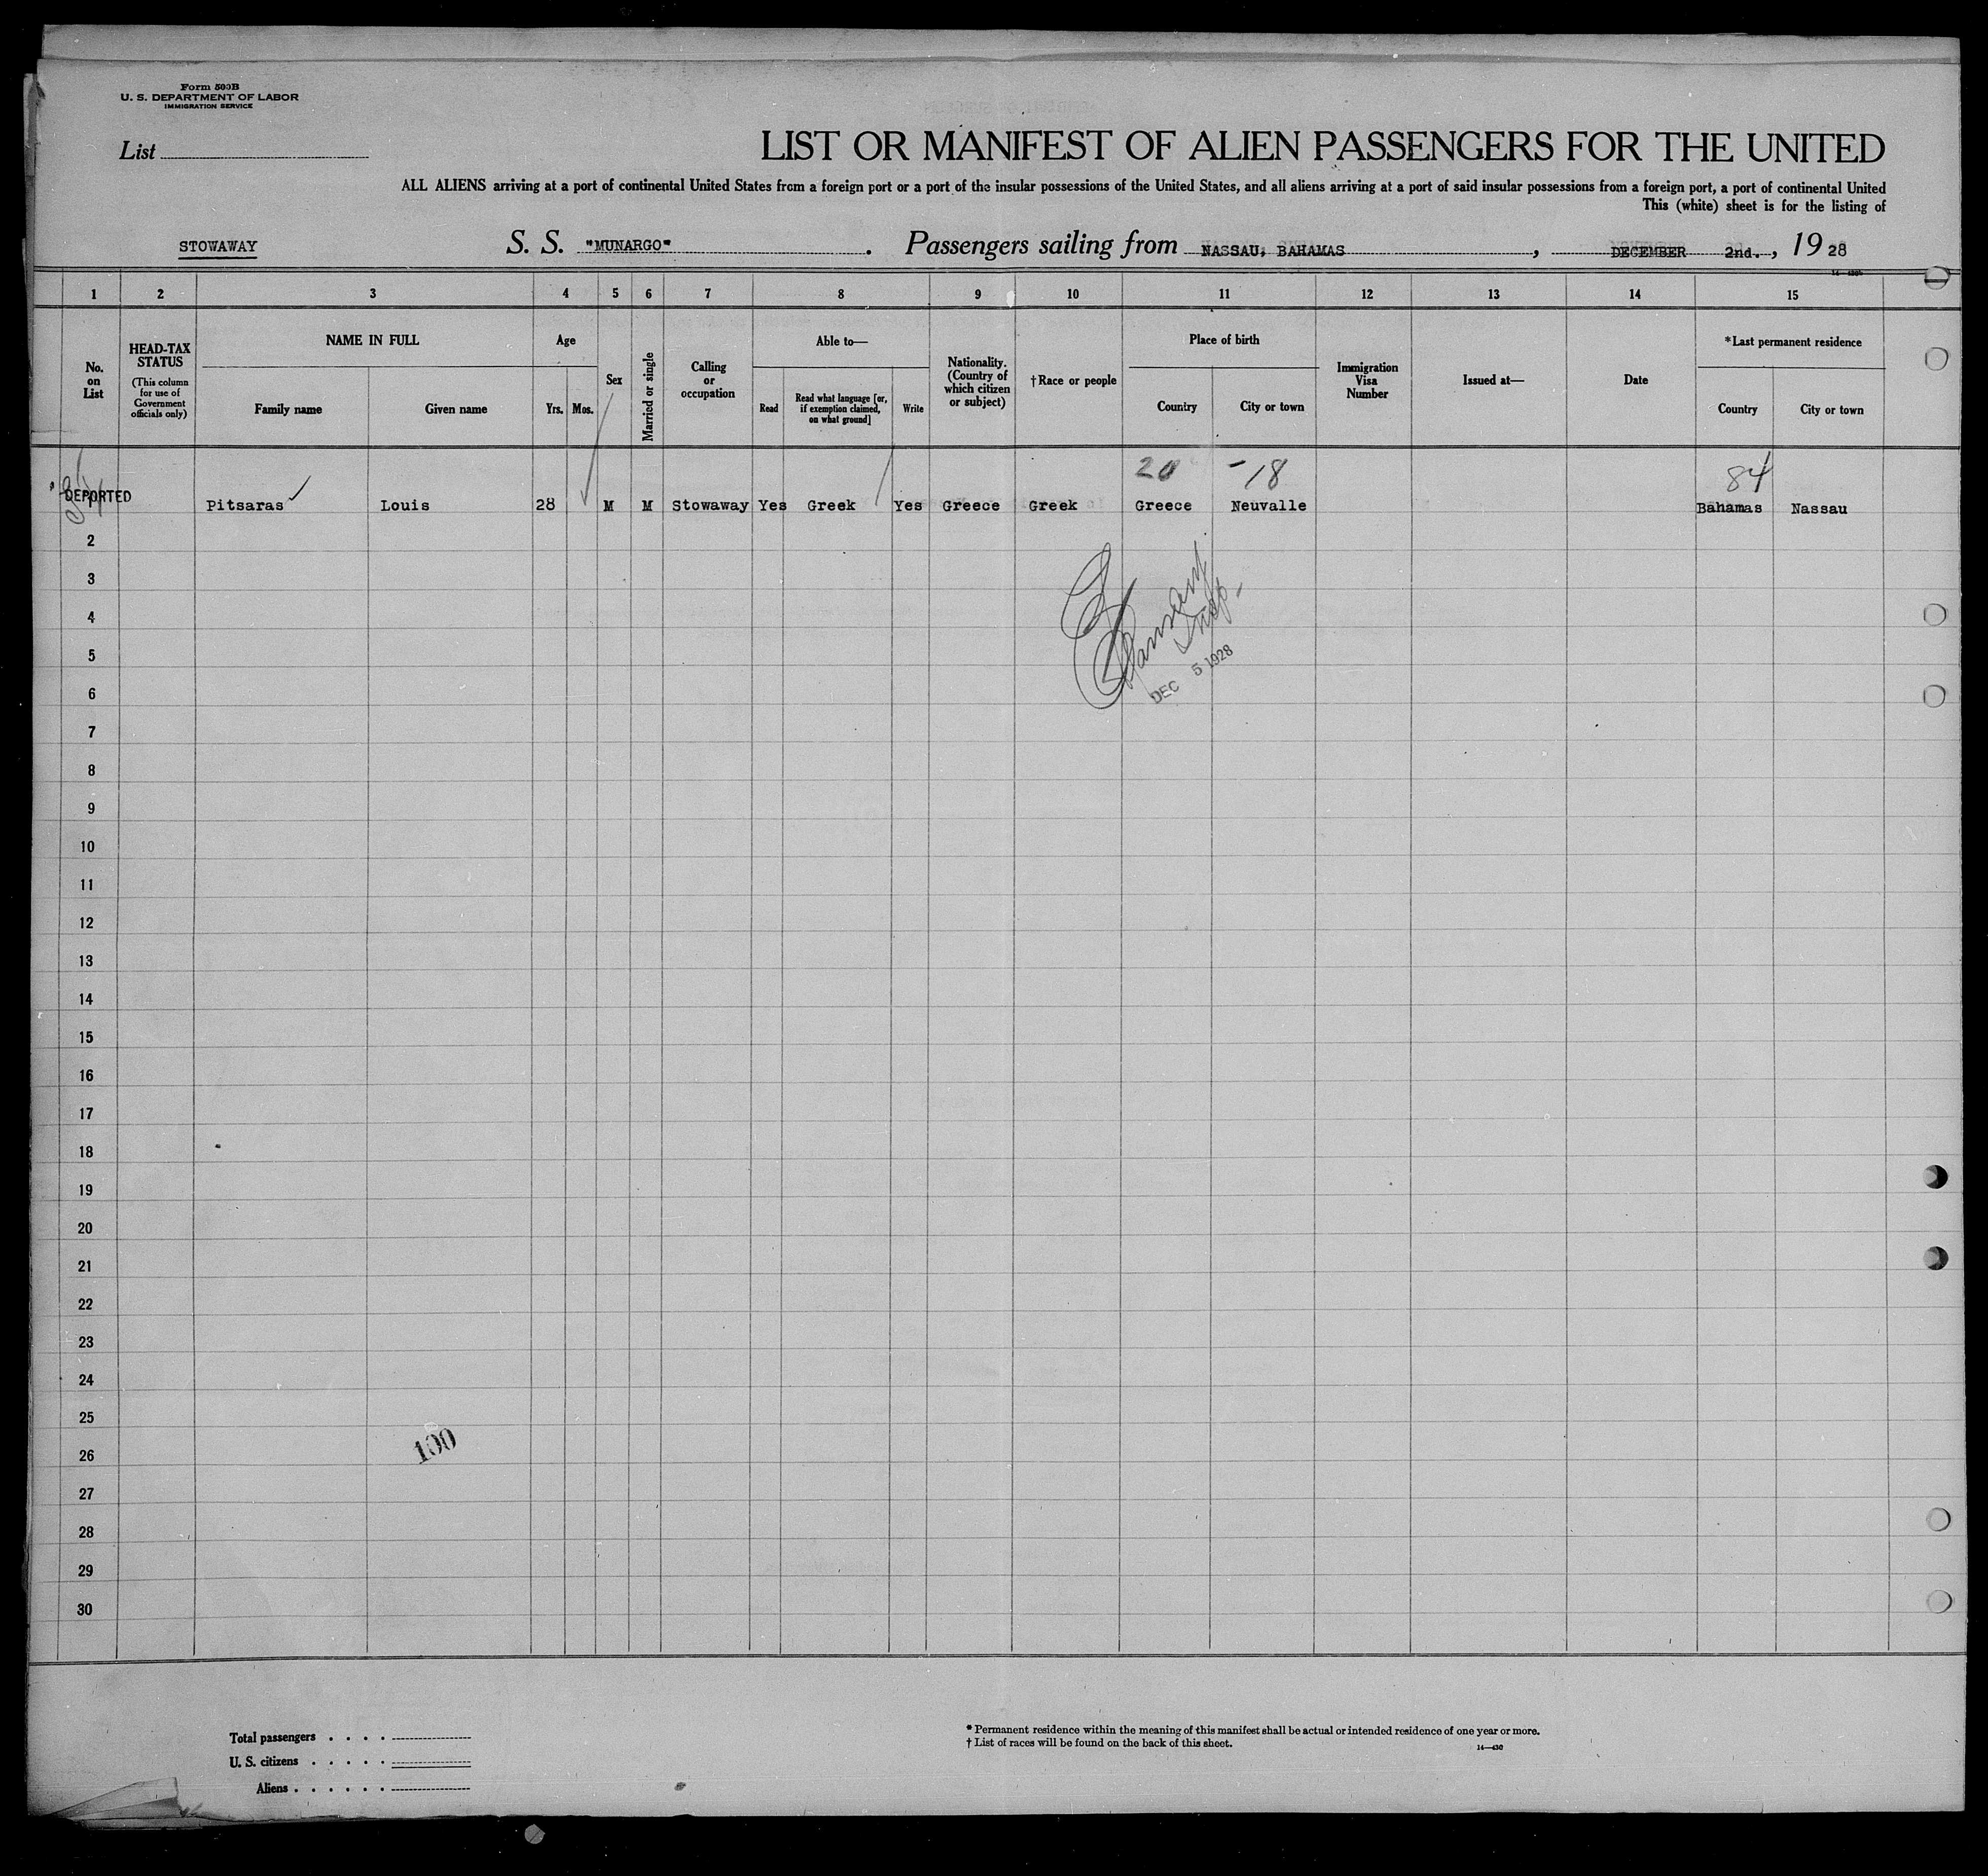 Form 500B
U. S. DEPARTMENT OF LABOR
IMMIGRATION SERVICE
List
LIST OR MANIFEST OF ALIEN PASSENGERS FOR THE UNITED
ALL ALIENS arriving at a port of continental United States from a foreign port or a port of the insular possessions of the United States, and all aliens arriving at a port of said insular possessions from a foreign port, a port of continental United
This (white) sheet is for the listing of
STOWAWAY S. S. "MUNARGO". Passengers sailing from NASSAU, BAHAMAS, DECEMBER 2nd., 1928
1 2 3 4 5 6 7 8 9 10 11 12 13 14 15
No. on List
HEAD-TAX STATUS
(This column for use of Government officials only)
NAME IN FULL
Family name Given name
Age
Yrs. Mos.
Sex
Married or single
Calling or occupation
Able to—
Read
Read what language [or, if exemption claimed, on what ground]
Write
Nationality. (Country of which citizen or subject)
†Race or people
Place of birth
Country City or town
Immigration Visa Number
Issued at—
Date
*Last permanent residence
Country City or town
20 -18 84
DEPORTED Pitsaras Louis 28 M M Stowaway Yes Greek Yes Greece Greek Greece Neuvalle Bahamas Nassau
2
3
4
5
Insp.
DEC 5 1928
6
7
8
9
10
11
12
13
14
15
16
17
18
19
20
21
22
23
24
25
100
26
27
28
29
30
Total passengers . . . .
U. S. citizens . . . . .
Aliens . . . . . .
* Permanent residence within the meaning of this manifest shall be actual or intended residence of one year or more.
† List of races will be found on the back of this sheet.
14—430